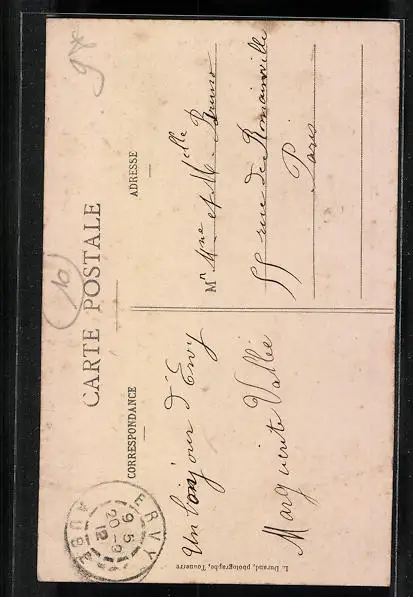 CARTE POSTALE
CORRESPONDANCE
ADRESSE
Un bonjour d'Ervy
Marguerite Vallée
M Mme et Melle Bruno
55 rue de Romainville
Paris
ERVY
9 5
20 - 9
12
AUBE
10
L. Durand, photographe, Tonnerre